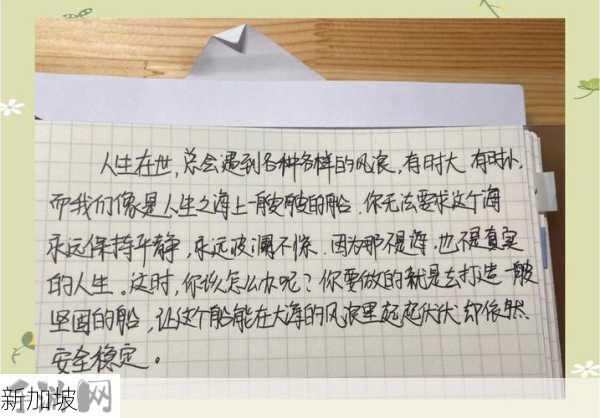 人生在世，总会遇到各种各样的风浪，有时大 有时小，
而我们像是人生之海上一艘艘的船．你无法要求这个海
永远保持平静，永远波澜不惊．因为那不是海，也不是真实
的人生。这时，你该怎么办呢？你要做的就是去打造一艘
坚固的船，让这个船能在大海的风浪里起起伏伏 却依然
安全稳定。
新加坡
网